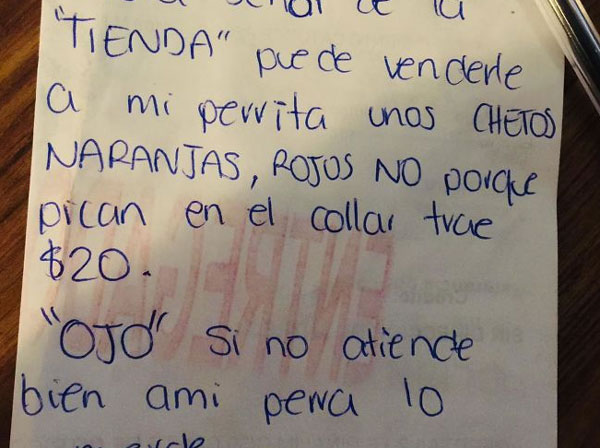 señor de la
"TIENDA" puede venderle
a mi perrita unos CHETOS
NARANJAS, ROJOS NO porque
pican en el collar trae
$20.
"OJO" si no atiende
bien ami perra lo